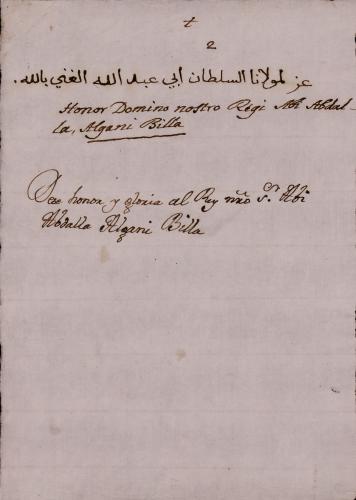 t
2
عز لمولانا السلطان ابي عبد الله الغني بالله.
Honor Domino nostro Regi Abi Abdal-
la, Algani Billa
Sea honra y gloria al Rey nrõ Sr. Abi
Abdalla Algani Billa